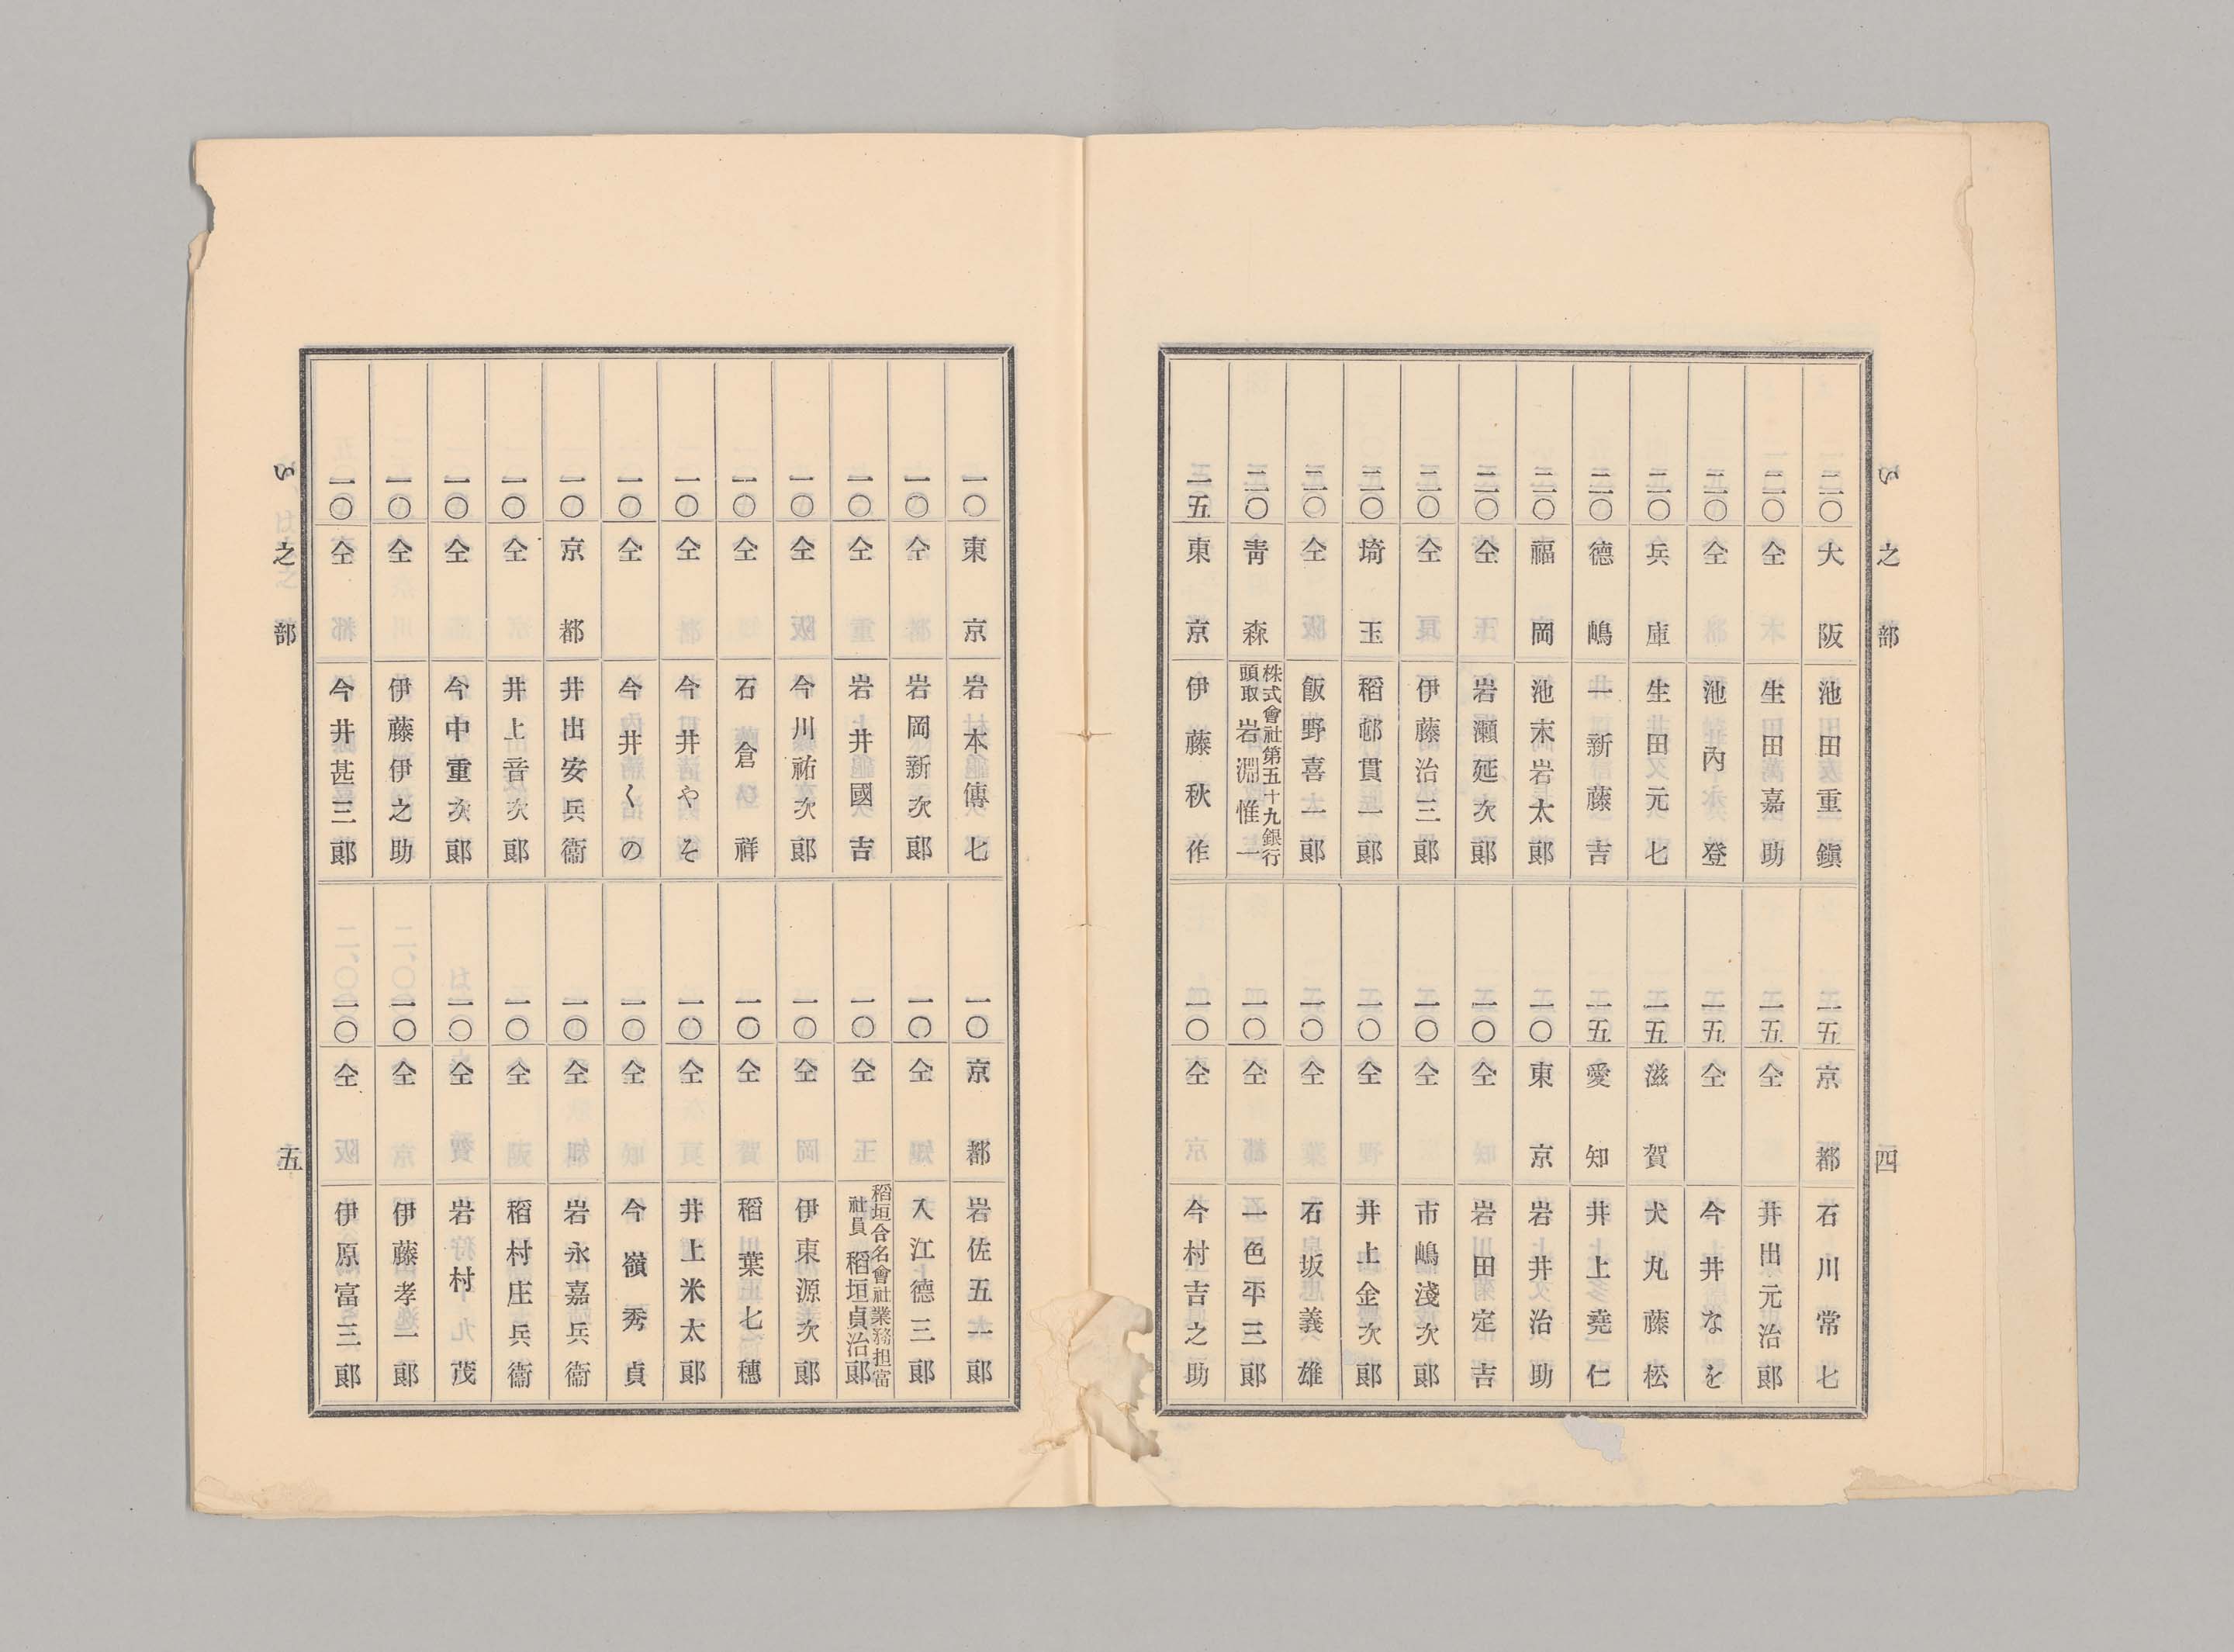 い之部 四
二〇 大阪 池田重鎭
二〇 仝 生田嘉助
二〇 仝 池內登
二〇 兵庫 生田元七
二〇 德嶋 一新藤吉
二〇 福岡 池末岩太郎
二〇 仝 岩瀨延次郎
二〇 仝 伊藤治三郎
二〇 埼玉 稻邨貫一郎
二〇 仝 飯野喜一郎
二〇 靑森 株式會社第五十九銀行頭取 岩淵惟一
一五 東京 伊藤秋作
一五 京都 石川常七
一五 仝 井出元治郎
一五 仝 今井なを
一五 滋賀 犬丸藤松
一五 愛知 井上堯仁
一〇 東京 岩井治助
一〇 仝 岩田定吉
一〇 仝 市嶋淺次郎
一〇 仝 井上金次郎
一〇 仝 石坂義雄
一〇 仝 一色平三郎
一〇 仝 今村吉之助
一〇 東京 岩本傳七
一〇 仝 岩岡新次郎
一〇 仝 岩井國吉
一〇 仝 今川祐次郎
一〇 仝 石倉祥
一〇 仝 今井やそ
一〇 仝 今井くの
一〇 京都 井出安兵衞
一〇 仝 井上音次郎
一〇 仝 今中重次郎
一〇 仝 伊藤伊之助
一〇 仝 今井甚三郎
一〇 京都 岩佐五一郎
一〇 仝 入江德三郎
一〇 仝 稻垣合名會社業務担當社員 稻垣貞治郎
一〇 仝 伊東源次郎
一〇 仝 稻葉七穗
一〇 仝 井上米太郎
一〇 仝 今嶺秀貞
一〇 仝 岩永嘉兵衞
一〇 仝 稻村庄兵衞
一〇 仝 岩村茂
一〇 仝 伊藤孝一郎
一〇 仝 伊原富三郎
い之部 五